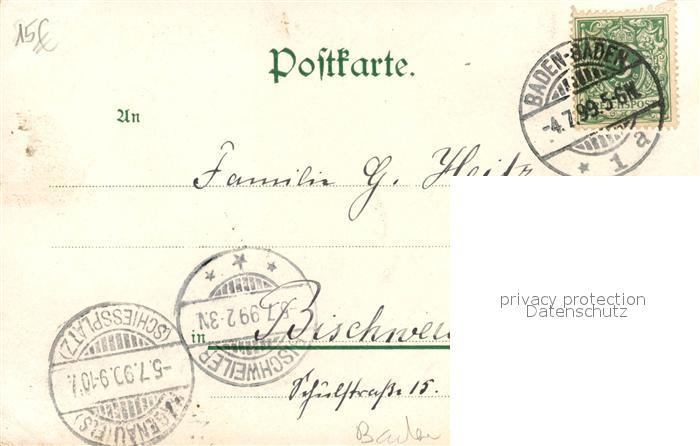 15€
Postkarte.
BADEN-BADEN
-4.7.99.5-6N.
* 1a
An
Familie G. Heitz
privacy protection
Datenschutz
7.99 2-3N
BISCHWEILER
in Bischwei
(SCHIESSPLATZ)
-5.7.99.9-10V.
HAGENAU (ELS)
Schulstraße 15.
Baden